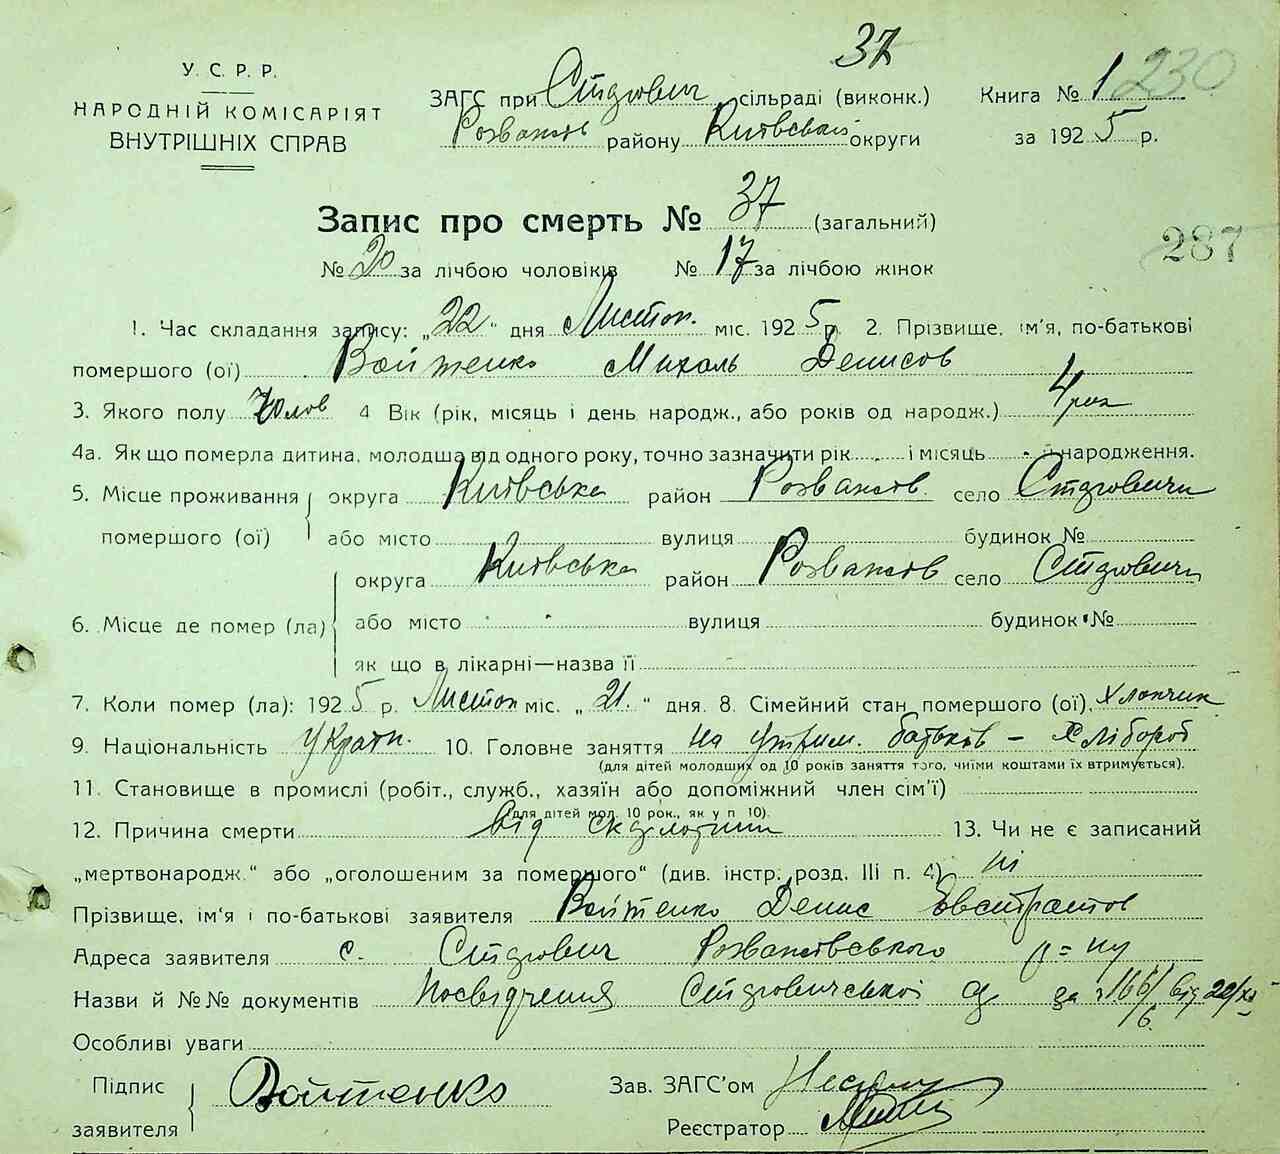 37
У. С. Р. Р.
НАРОДНІЙ КОМІСАРІЯТ
ВНУТРІШНІХ СПРАВ
ЗАГС при Стдювич сільраді (виконк.)
Розважів району Київської округи
Книга № 1 230
за 1925 р.
Запис про смерть № 37 (загальний)
№ 20 за лічбою чоловіків № 17 за лічбою жінок
287
1. Час складання запису: „22" дня Листоп. міс. 1925 р. 2. Прізвище, ім'я, по-батькові
помершого (ої) Войтенко Михаль Денисов
3. Якого полу Чолов 4 Вік (рік, місяць і день народж., або років од народж.) 4 рок
4а. Як що померла дитина, молодша від одного року, точно зазначити рік і місяць й народження.
5. Місце проживання округа Київська район Розважів село
помершого (ої) або місто вулиця будинок №
6. Місце де помер (ла) округа Київська район Розважів село
або місто вулиця будинок №
як що в лікарні—назва її
7. Коли помер (ла): 1925 р. Листоп міс. „21." дня. 8. Сімейний стан помершого (ої). Хлопчик
9. Національність Україн. 10. Головне заняття на утрим. батьків – хлібороб
(для дітей молодших од 10 років заняття того, чиїми коштами їх втримується).
11. Становище в промислі (робіт., служб., хазяїн або допоміжний член сім'ї)
(для дітей мол. 10 рок., як у п 10).
12. Причина смерти від 13. Чи не є записаний
„мертвонародж." або „оголошеним за помершого" (див. інстр. розд. III п. 4) ні
Прізвище, ім'я і по-батькові заявителя Войтенко Денис Евстратов
Адреса заявителя с. Розважівського р=ну
Назви й №№ документів Посвідчення за від
Особливі уваги
Підпис заявителя Войтенко
Зав. ЗАГС'ом
Реєстратор